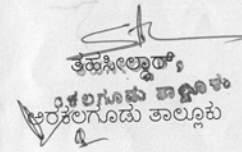 ತಹಸೀಲ್ದಾರ್,
ಅರಕಲಗೂಡು ತಾಲ್ಲೂಕು
ಅರಕಲಗೂಡು ತಾಲ್ಲೂಕು